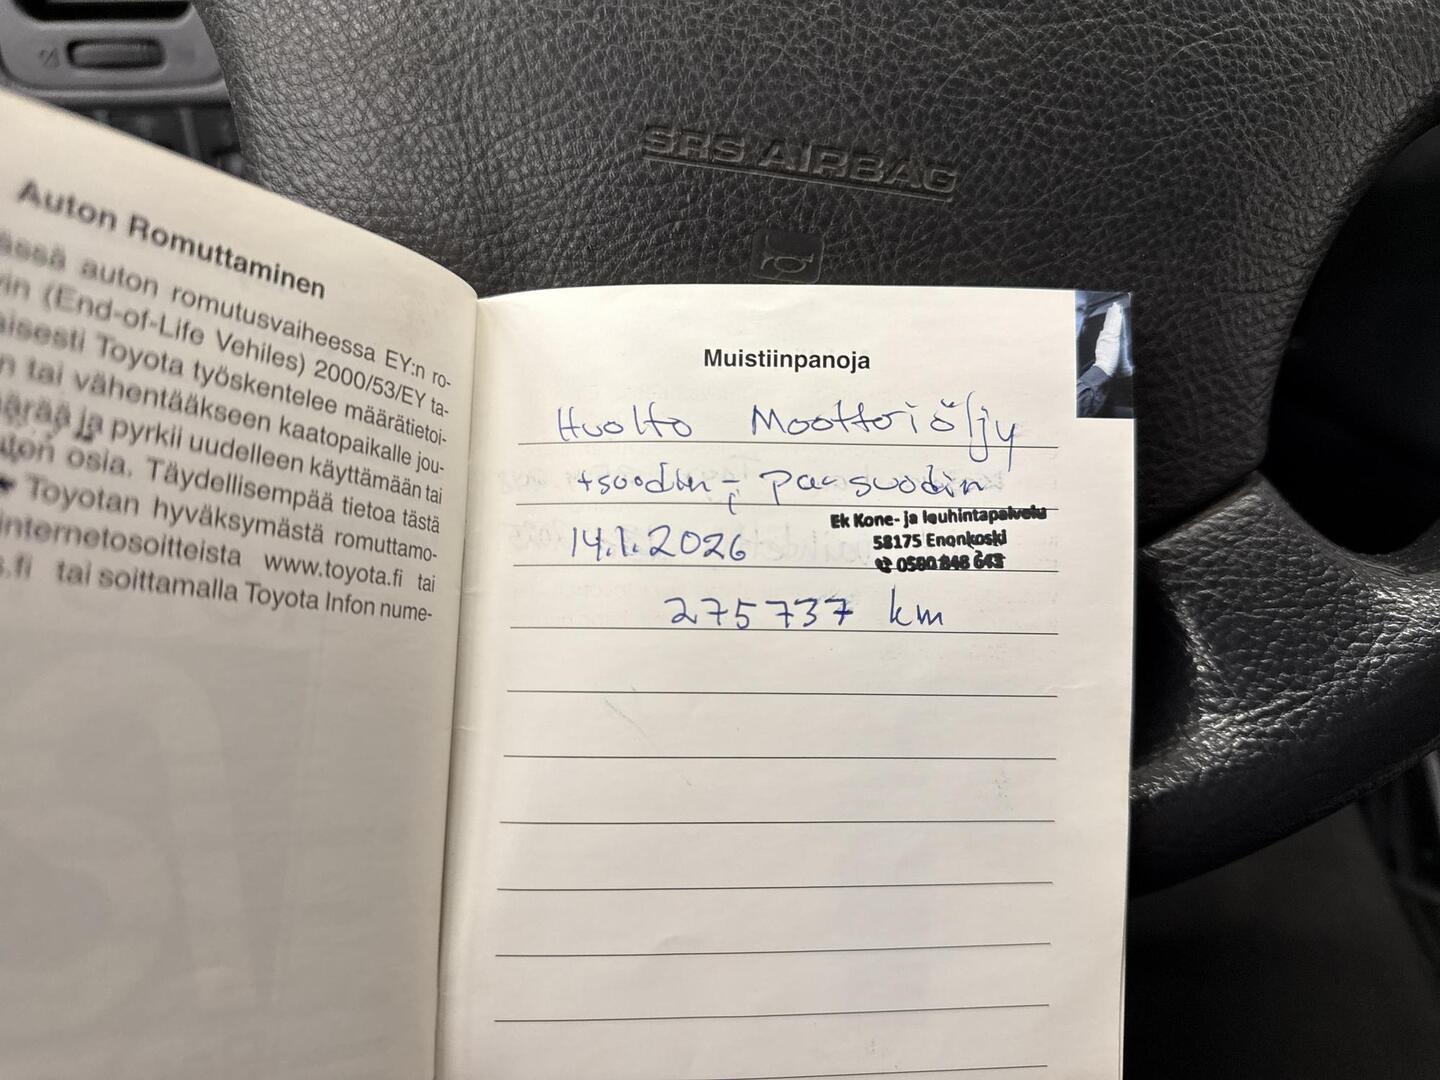 SRS AIRBAG
Auton Romuttaminen
ässä auton romutusvaiheessa EY:n ro-
vin (End-of-Life Vehiles) 2000/53/EY ta-
aisesti Toyota työskentelee määrätietoi-
n tai vähentääkseen kaatopaikalle jou-
äärää ja pyrkii uudelleen käyttämään tai
auton osia. Täydellisempää tietoa tästä
Toyotan hyväksymästä romuttamo-
internetosoitteista www.toyota.fi tai
s.fi tai soittamalla Toyota Infon nume-
Muistiinpanoja
Huolto Moottoriöljy
+suodin
14.1.2026
Ek Kone- ja louhintapalvelu
58175 Enonkoski
275737 km